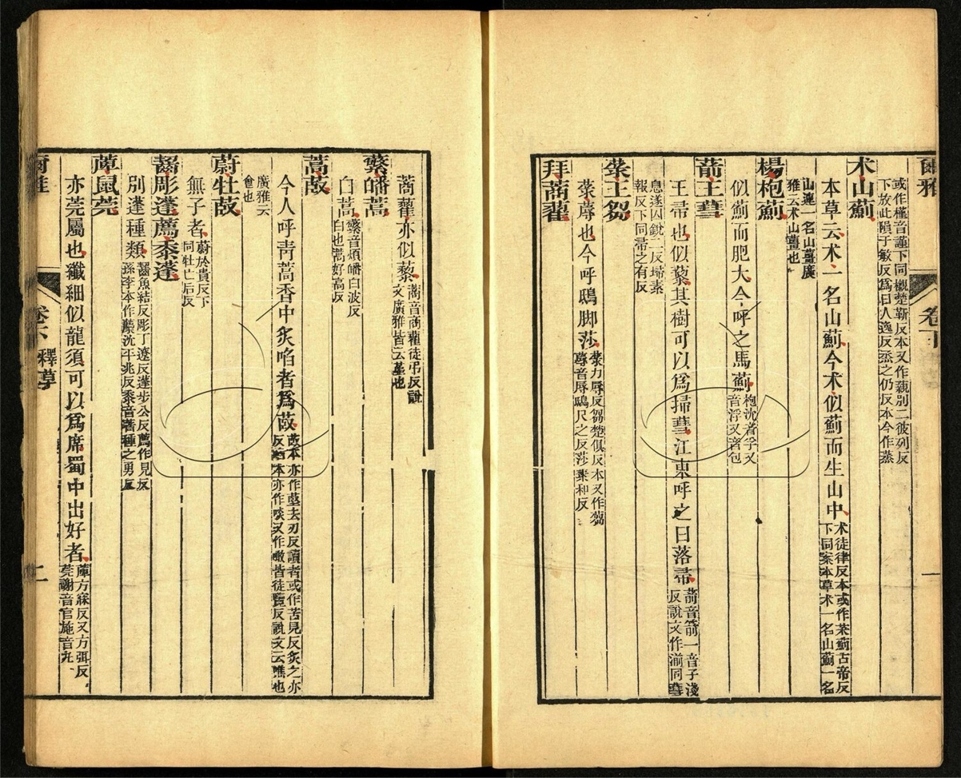 爾雅
卷下
一
或作槿音謹下同櫬楚靳反本又作藽別二彼列反
下放此隕于敏反爲曰人逸反烝之仍反本今作蒸
术山薊
本草云术一名山薊今术似薊而生山中术徒律反本或作茶薊古帝反
下同案本草术一名山薊一名
山薑一名山薑廣
雅云术山薑也
楊枹薊
似薊而肥大今呼之馬薊枹沈者孚又
音浮又音包
葥王蔧
王帚也似藜其樹可以爲掃蔧江東呼之曰落帚葥音箭一音子淺
反說文作湔同蔧
息遂囚銳二反埽素
報反下同帚之有反
菉王芻
菉蓐也今呼鴟脚莎菉力辱反芻楚俱反本又作蒭
蓐音辱鴟尺之反莎素和反
拜蔏藋
蔏藋亦似藜蔏音商藋徒弔反說
文廣雅皆云堇也
蘩皤蒿
白蒿蘩音煩皤白波反
白也蒿好高反
蒿菣
今人呼青蒿香中炙啗者爲菣菣本亦作藖去刃反讀者或作苦見反炙之亦
反啗本亦作啖又作噉皆徒覽反說文云噍也
廣雅云
食也
蔚牡菣
無子者蔚於貴反下
同牡亡后反
齧彫蓬薦黍蓬
別蓬種類齧魚結反彫丁遼反蓬步公反薦作見反
孫李本作藨沈平兆反黍音暑種之勇反
䓑鼠莞
亦莞屬也纖細似龍須可以爲席蜀中出好者䓑方寐反又方弭反
莞謝音官施音丸
爾雅
卷下
釋草
二